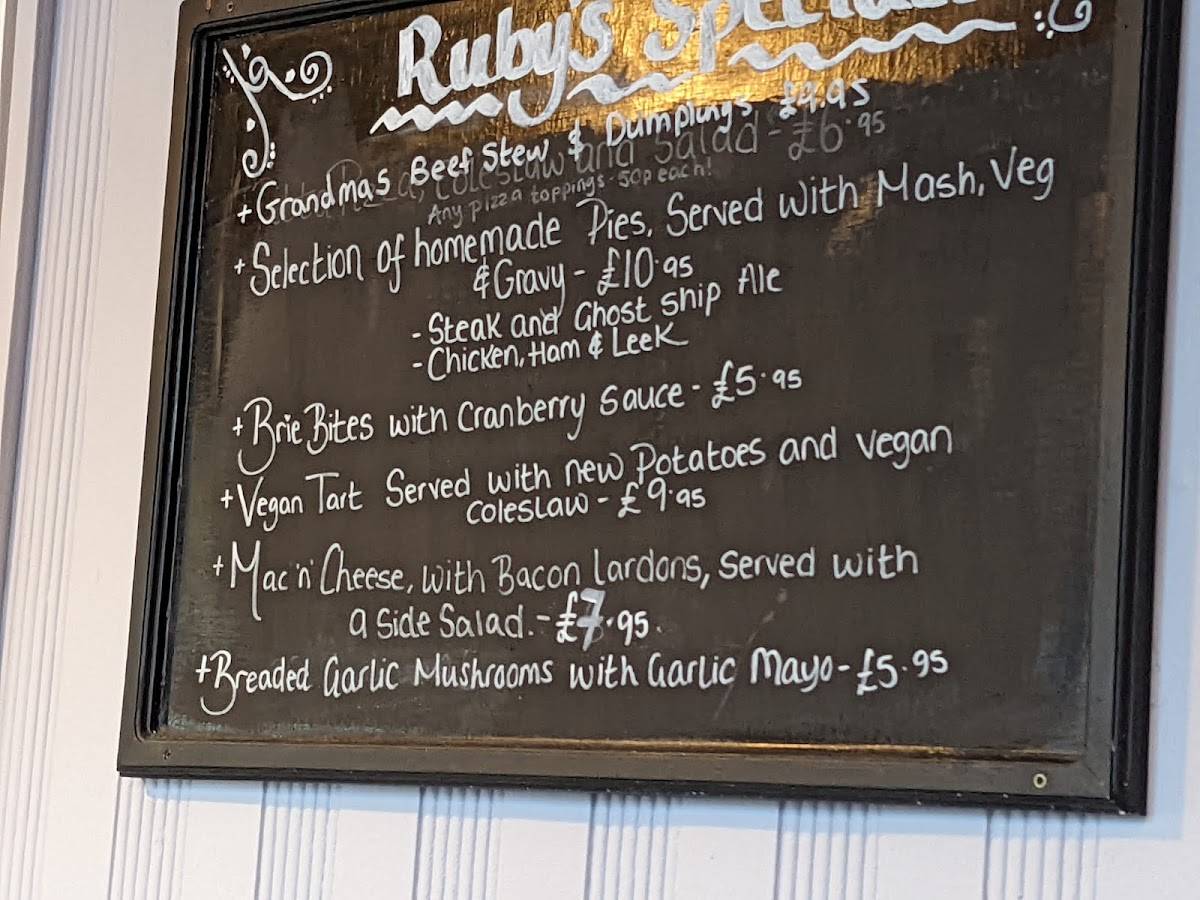 Ruby's Specials
+ Grandmas Beef Stew & Dumplings £9.95
Pizza, coleslaw and Salad - £6.95
Any pizza toppings - 50p each!
+ Selection of homemade Pies, Served with Mash, Veg
& Gravy - £10.95
- Steak and Ghost Ship Ale
- Chicken, Ham & Leek
+ Brie Bites with Cranberry Sauce - £5.95
+ Vegan Tart Served with new Potatoes and vegan
coleslaw - £9.95
+ Mac 'n' Cheese, with Bacon Lardons, Served with
a Side Salad. - £7.95.
+ Breaded Garlic Mushrooms with Garlic Mayo - £5.95